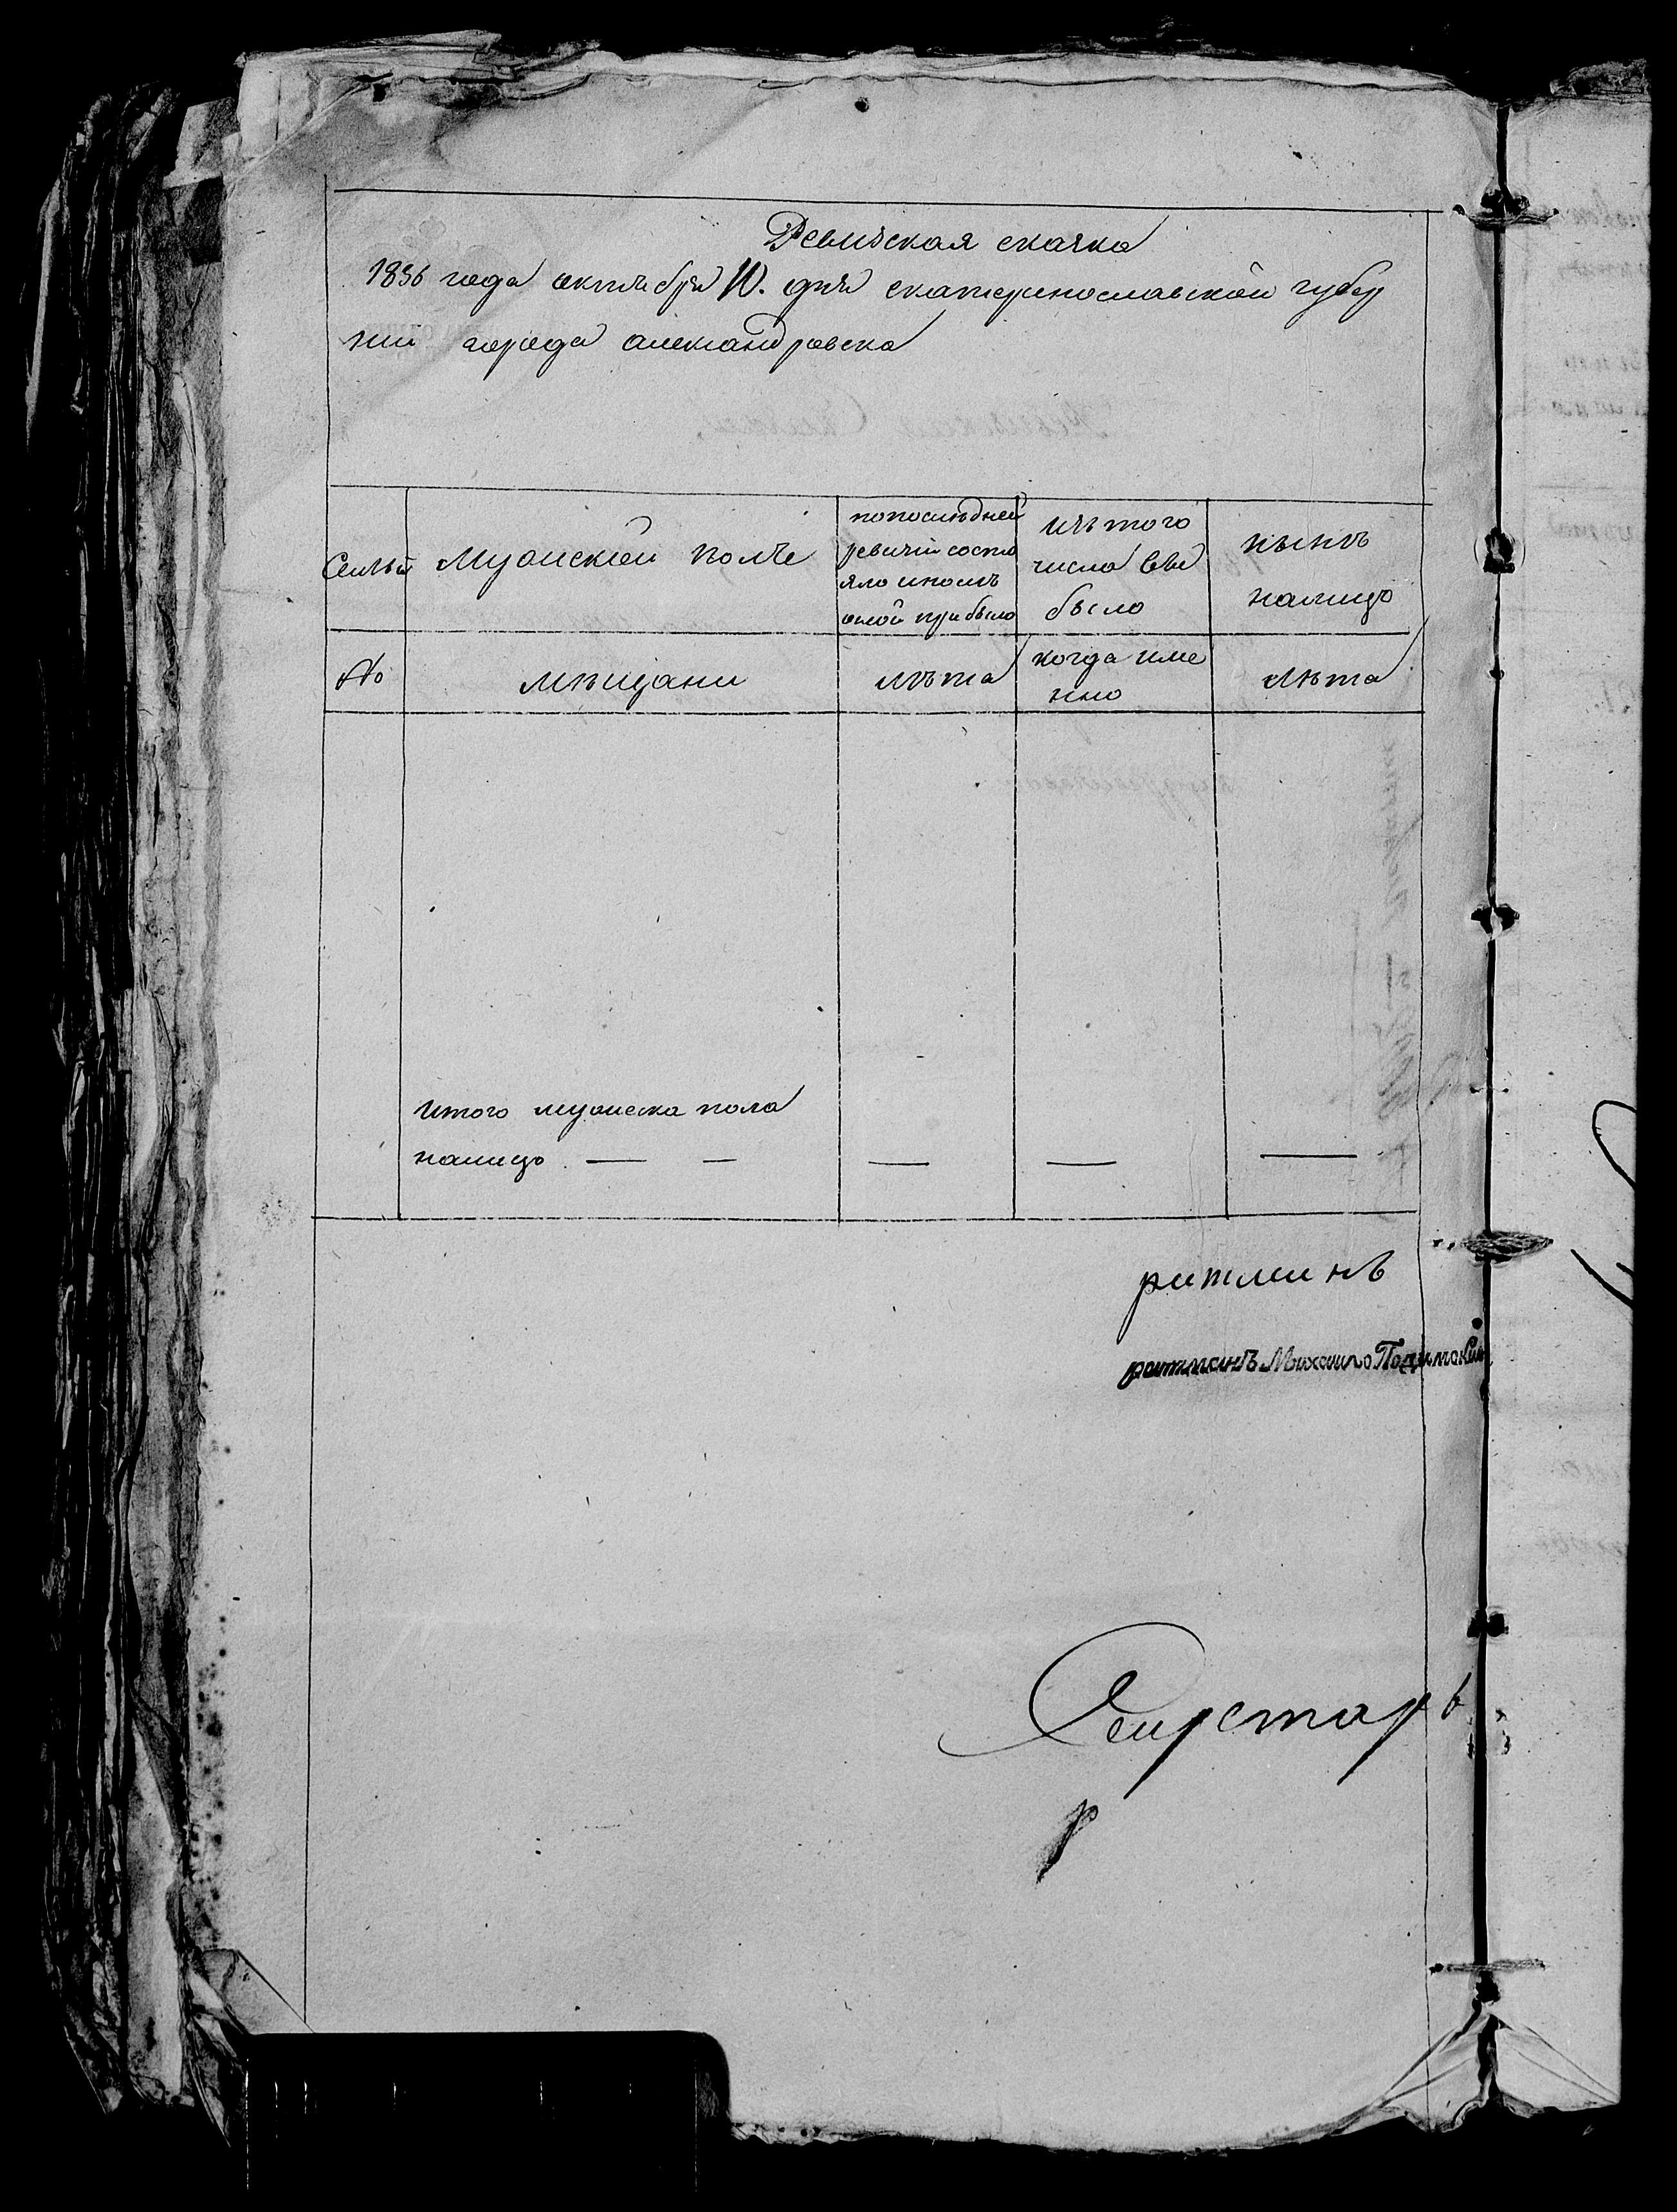 Ревизская сказка
1856 года октября 10. дня екатеринославской губер
нии города александровска
Семьи
Мужеский полъ
попоследней
ревизіи состо
яло ипослъ
оной прибыло
изъ того
числа вы
было
нынъ
налицо
№
мъщани
лъта
когда име
нно
лъта
итого мужеска пола
налицо — — — — —
ратманъ
ратманъ Михаило